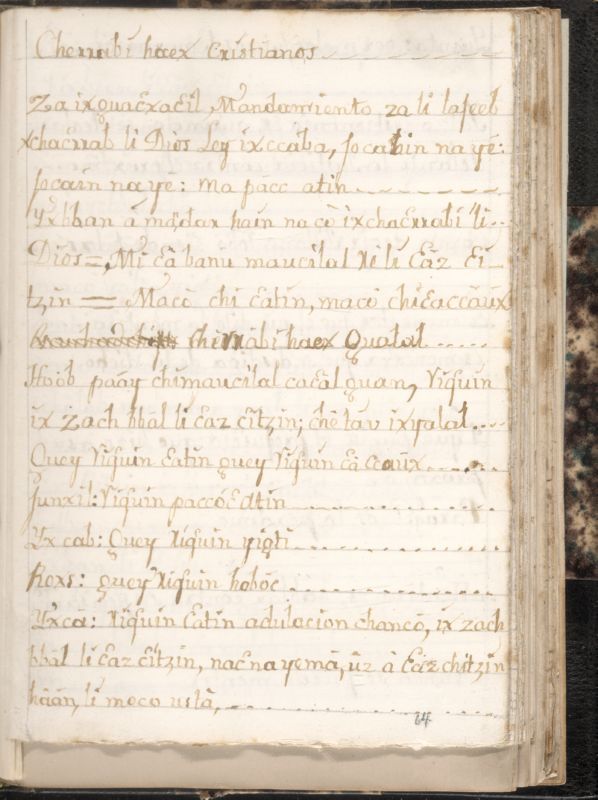 Cherrabi haex Cristianos
Za ixguacxacil, Mandamiento, za li lafeeb
xchacrrab li Dios Ley ixccaba, focahin na yé:
focain na ye: ma pacc atin
Yxbban á mácdar hain na cò ixchacrrabi li
Dios=, Mi cà banu maucilal re li Càz Ci-
tzin = Macò chi Catin, macò chiCaccàux
chirrabi haex Qualal
Hoòb paay chimaucilal cacàl quan, Viquin
ix Zach bbàl li Caz Citzin; chè tav ixyalal
Quey Viquin Catin quey Viquin Cà Ccaux
Junxil: Viquin paccó Catin
Yx cab: Quey Viquin yioti
Roxs: quey Viquin hoboc
Yxca: Viquin Catin adulacion chancò, ix zach
bbàl li Caz Citzin, nac na yemà, ùz à Càz chitzin
hàan, li moco ustà,
64